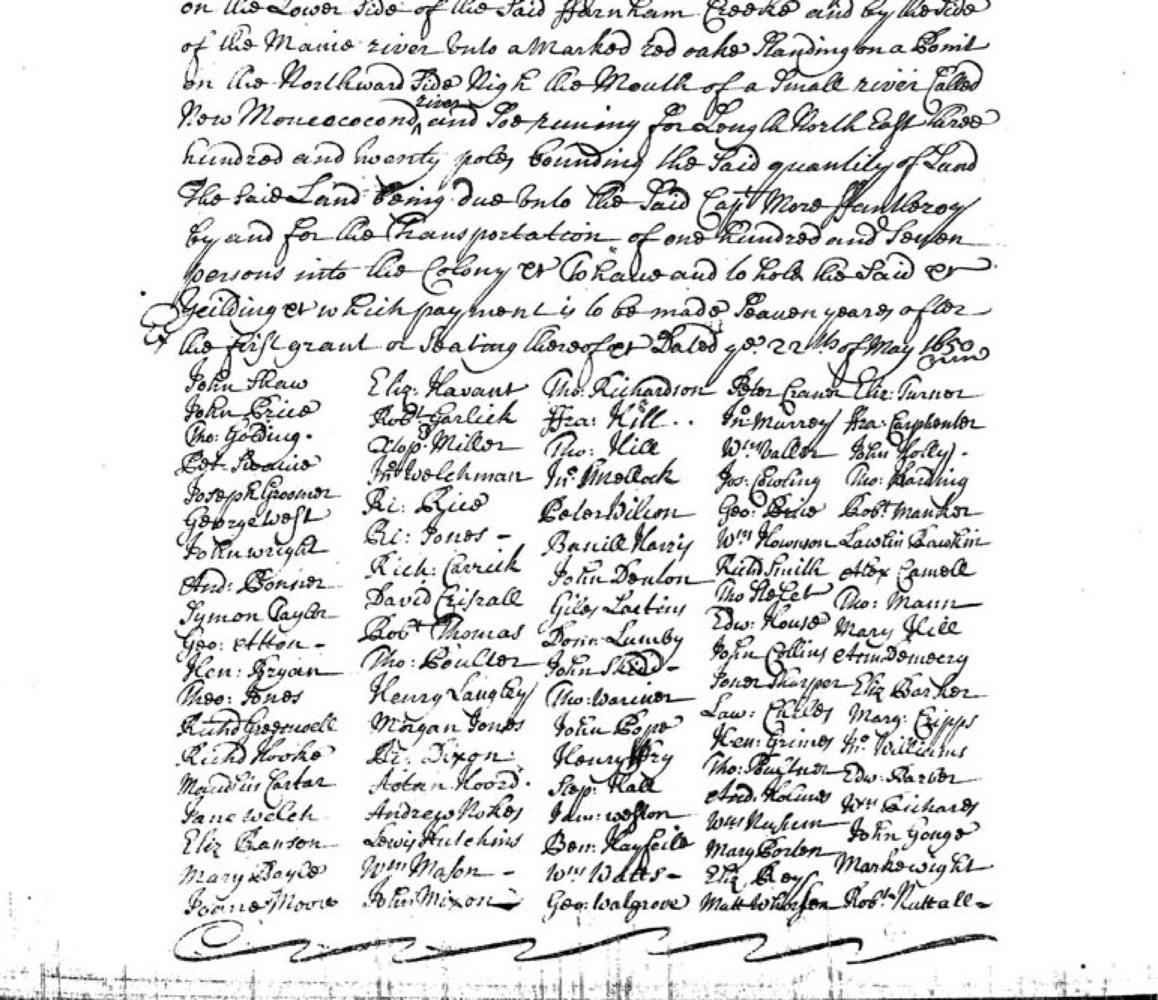 on the Lower Side of the Said ffarnham Creeke and by the Side
of the Maine river unto a Marked red oake Standing on a Point
on the Northward Side Nigh the Mouth of a Small river Called
New Moneococond river and Soe runing for Length North East three
hundred and twenty poles bounding the Said quantity of Land
The Said Land being due unto the Said Capt More ffantleroy
by and for the Transportation of one hundred and Seven
persons into the Colony &c To have and to hold the Said &c
Yeilding &c which payment is to be made Seaven yeares after
the first grant or Seating thereof &c Dated ye 22th of May 1650
John Shaw Eliz: Havant Tho: Richardson Peter Eliz: Turner
John Price Robt Garlick ffra: Hill.. Jno: Murrey ffra: Carphenter
Tho: Golding. Miller Tho: Hill Wm Waller John Holly.
Pet: Jno Welchman Jno Smellock Jos: Cowling Tho: Harding
Joseph Groomer Ri: Rice Peter Wilson Geo: Price Robt Manker
George West Ri: Jones - Harris Wm Hownson
John wright Rich: Carrick John Denton Richd Smith Alex Camell
And: Bonner David Giles Tho Tho: Mann
Symon Taylor Robt Thomas Lumby Edw: House Mary Hill
Geo: Atton - Tho: Poulter John John Collins
Hen: Bryan Henry Langley Tho: Wariner Jones Sharper Eliz Barker
Theo: Jones Morgan Jones John Pope Law: Chiles Marg: Cripps
Richd Ri: Dixon Henry ffry Hen: Grimes Jno Williams
Richd Hooke Step: Hall Tho: Edw: Barber
Cartar Andrew Nokes weston And: Holmes Wm Richards
Jane welch Lewis Hutchins Ben: Wm John Gouge
Eliz Ranson Wm Mason - Wm Watts - Mary Marke wight
Mary John Mixon Geo: Walgrove Eliz Key Robt Nuttall -
Joane Moore Matt